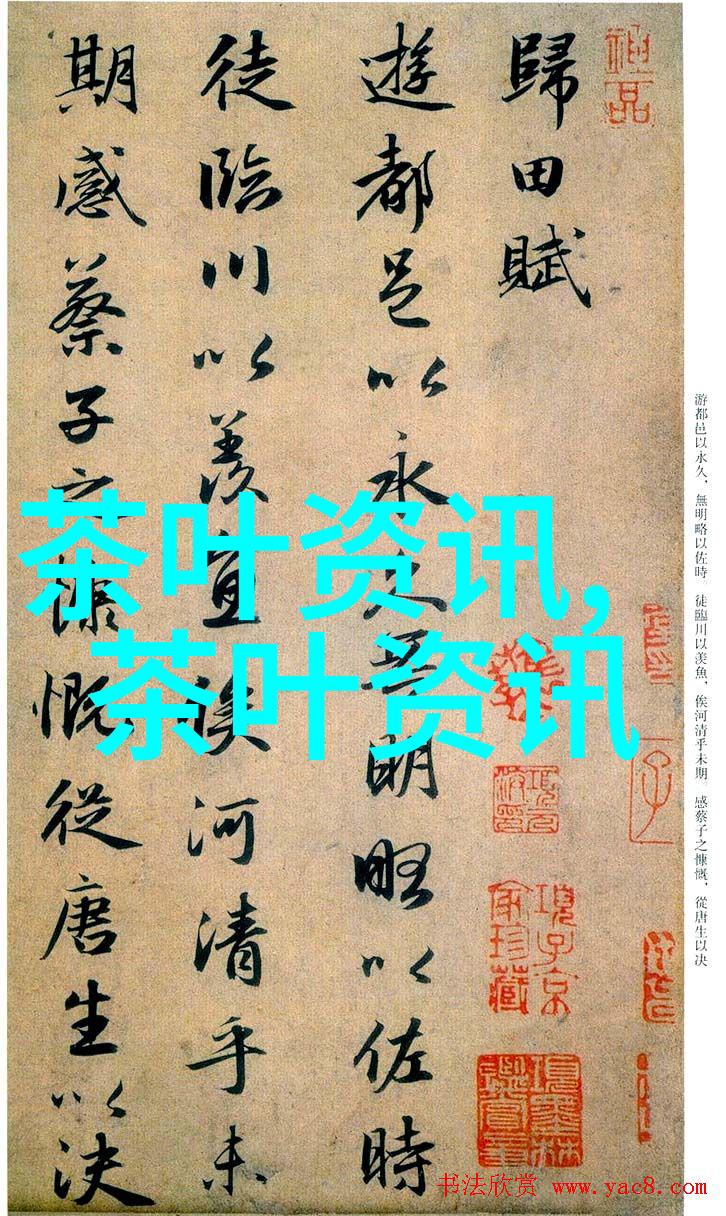 歸田賦
遊都邑以永久無明略以佐時
徒臨川以羨魚俟河清乎未
期感蔡子之慷慨從唐生以決
茶叶资讯,
茶叶资讯
神品
項子京
家珍藏
項墨林
鑑賞章
游都邑以永久，無明略以佐時。徒臨川以羡魚，俟河清乎未期。感蔡子之慷慨，從唐生以决
书法欣赏 www.yac8.com